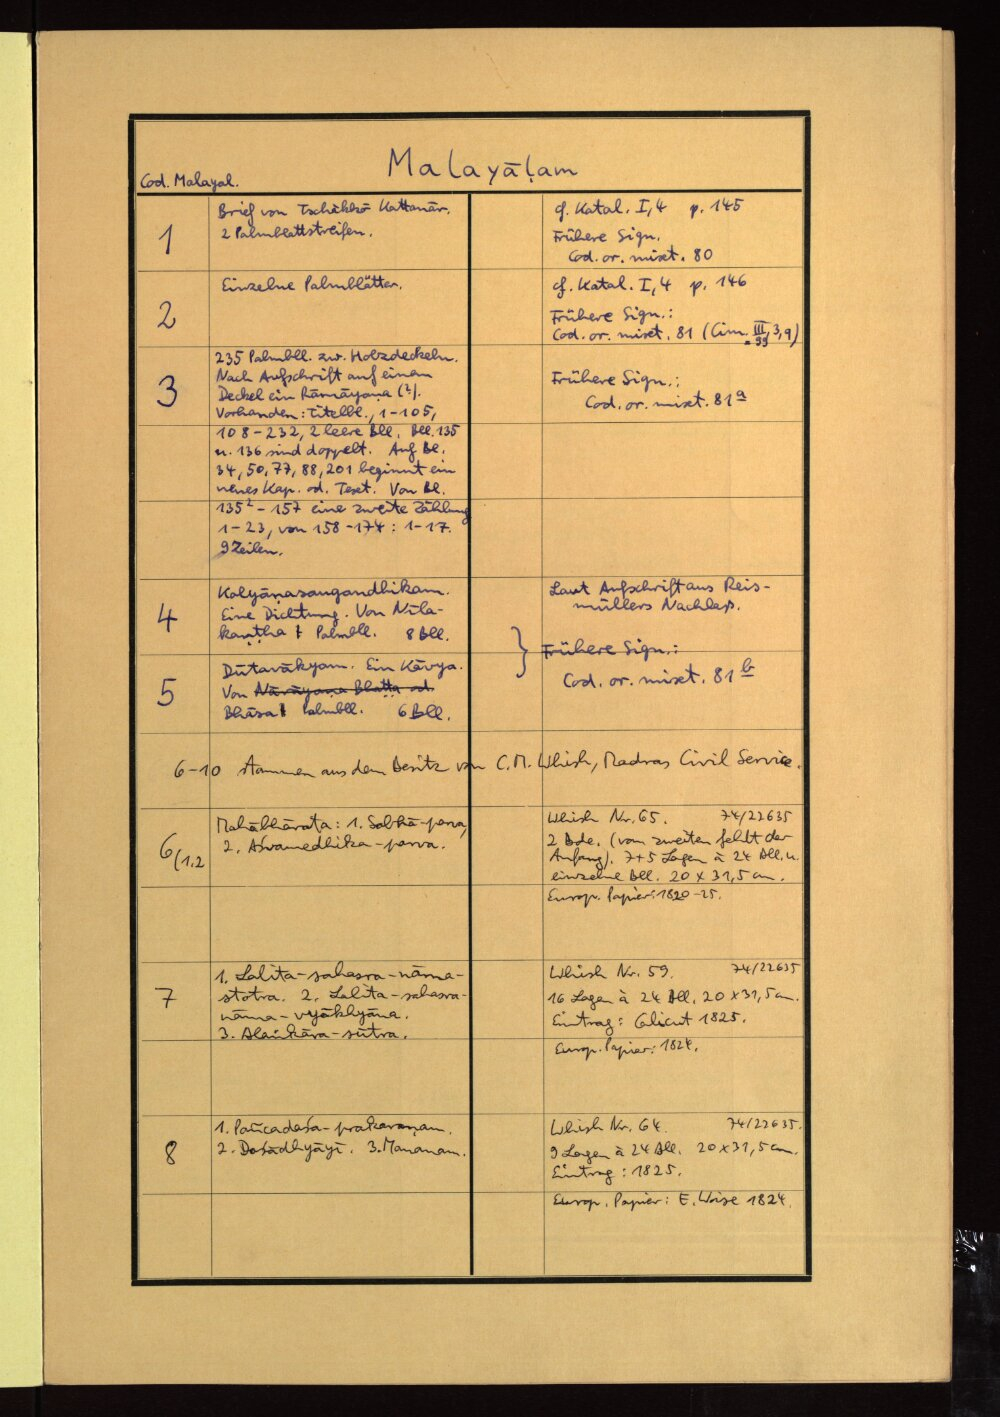 Malayāḷam
Cod. Malayal.
1
Brief von Tschākkō Kattanār.
2 Palmblattstreifen.
cf. Katal. I,4 p. 145
Frühere Sign.
Cod. or. mixt. 80
2
Einzelne Palmblätter.
cf. Katal. I,4 p. 146
Frühere Sign.:
Cod. or. mixt. 81 (Cim. III, 3, 9)
99
3
235 Palmbll. zw. Holzdeckeln.
Nach Aufschrift auf einem
Deckel ein Rāmāyaṇa (?).
Vorhanden: Titelbl., 1-105,
108-232, 2 leere Bll. Bll. 135
u. 136 sind doppelt. Auf Bl.
34, 50, 77, 88, 201 beginnt ein
neues Kap. od. Text. Von Bl.
135² - 157 eine zweite Zählung
1-23, von 158-174: 1-17.
9 Zeilen.
Frühere Sign.:
Cod. or. mixt. 81 a
4
Kalyāṇasaugandhikam.
Eine Dichtung. Von Nīla-
kaṇṭha Palmbll. 8 Bll.
Laut Aufschrift aus Reis-
müllers Nachlass.
5
Dūtavākyam. Ein Kāvya.
Von Nārāyaṇa Bhaṭṭa od.
Bhāsa Palmbll. 6 Bll.
} Frühere Sign.:
Cod. or. mixt. 81 b
6-10 stammen aus dem Besitz von C.M. Whish, Madras Civil Service.
6/1.2
Mahābhārata: 1. Sabhā-parva,
2. Aśvamedhika-parva.
Whish Nr. 65. 74/22635
2 Bde. (vom zweiten fehlt der
Anfang). 7+5 Lagen à 24 Bll. u.
einzelne Bll. 20 x 31,5 cm.
Europ. Papier: 1820-25.
7
1. Lalita-sahasra-nāma-
stotra. 2. Lalita-sahasra-
nāma-vyākhyāna.
3. Alaṅkāra-sūtra.
Whish Nr. 59. 74/22635
16 Lagen à 24 Bll. 20 x 31,5 cm.
Eintrag: Calicut 1825.
Europ. Papier: 1824.
8
1. Pañcadaśa-prakaraṇam.
2. Daśādhyāyī. 3. Mananam.
Whish Nr. 64. 74/22635.
9 Lagen à 24 Bll. 20 x 31,5 cm.
Eintrag: 1825.
Europ. Papier: E. Wise 1824.